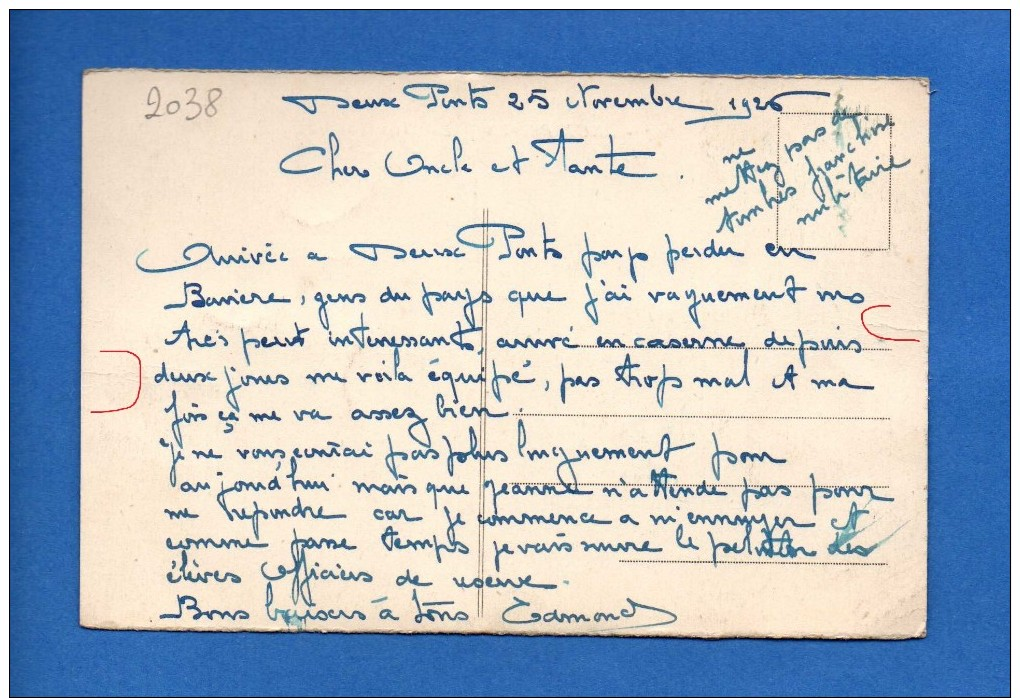 2038
Deux Ponts 25 Novembre 1926
Chers Oncle et Tante.
ne
mettez pas de
timbres franchise
militaire
Arrivée a Deux Ponts pays perdu en
Baviere, gens du pays que j'ai vaguement vus
très peut interessants, arrivé en caserne depuis
deux jours me voila équipé, pas trop mal et ma
fois ça me va assez bien.
Je ne vous écrirai pas plus longuement pour
aujourd'hui mais que Jeanne n'attende pas pour
me repondre car je commence a m'ennuyer et
comme passe temps je vais suivre le peloton des
élèves Officiers de reserve.
Bons baisers à tous Edmond